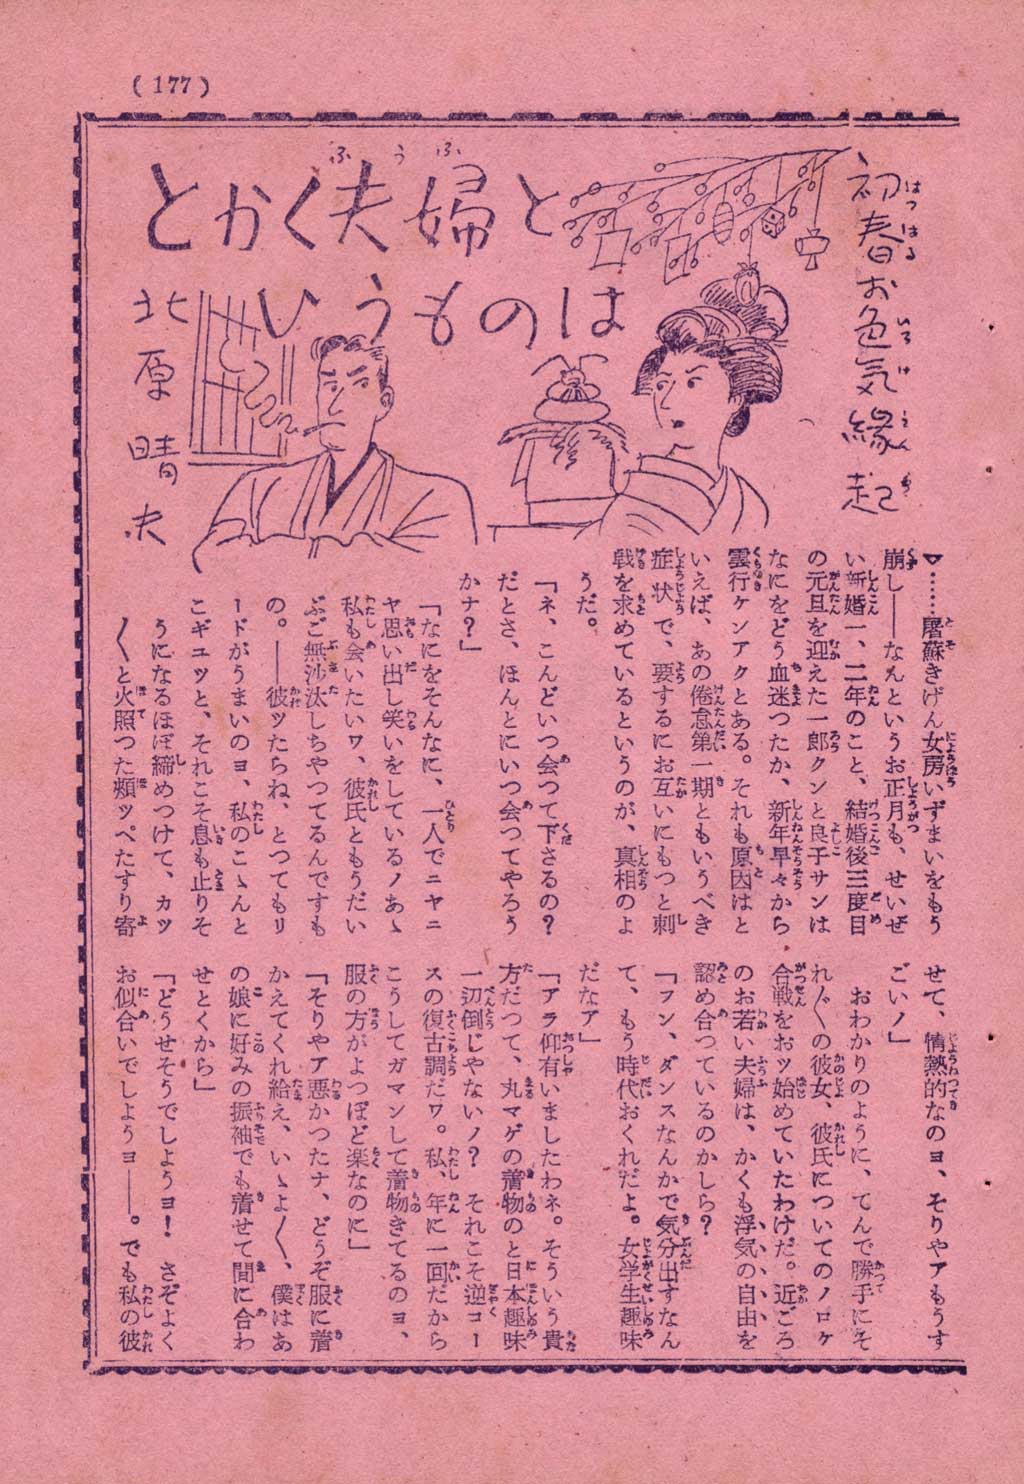 (177)
初春お色気縁起
とかく夫婦と
いうものは
北原晴夫
▽……屠蘇きげん女房いずまいをもう
崩し——なんというお正月も、せいぜ
い新婚一、二年のこと、結婚後三度目
の元旦を迎えた一郎クンと良子サンは
なにをどう血迷つたか、新年早々から
雲行ケンアクとある。それも原因はと
いえば、あの倦怠第一期ともいうべき
症状で、要するにお互いにもつと刺
戟を求めているというのが、真相のよ
うだ。
「ネ、こんどいつ会つて下さるの？
だとさ、ほんとにいつ会つてやろう
かナ？」
「なにをそんなに、一人でニヤニ
ヤ思い出し笑いをしているノあゝ
私も会いたいワ、彼氏ともうだい
ぶご無沙汰しちやつてるんですも
の。——彼ッたらね、とつてもリ
ードがうまいのヨ、私のこゝんと
こギュッと、それこそ息も止りそ
うになるほぼ締めつけて、カッ
〳〵と火照つた頬ッぺたすり寄
せて、情熱的なのヨ、そりやアもうす
ごいノ」
おわかりのように、てんで勝手にそ
れ〴〵の彼女、彼氏についてのノロケ
合戦をおッ始めていたわけだ。近ごろ
のお若い夫婦は、かくも浮気の自由を
認め合つているのかしら？
「フン、ダンスなんかで気分出すなん
て、もう時代おくれだよ。女学生趣味
だなア」
「アラ仰有いましたわネ。そういう貴
方だつて、丸マゲの着物のと日本趣味
一辺倒じやないノ？　それこそ逆コー
スの復古調だワ。私、年に一回だから
こうしてガマンして着物きてるのヨ、
服の方がよつぽど楽なのに」
「そりやア悪かつたナ、どうぞ服に着
かえてくれ給え、いゝよ〳〵、僕はあ
の娘に好みの振袖でも着せて間に合わ
せとくから」
「どうせそうでしようヨ！　さぞよく
お似合いでしようヨ——。でも私の彼